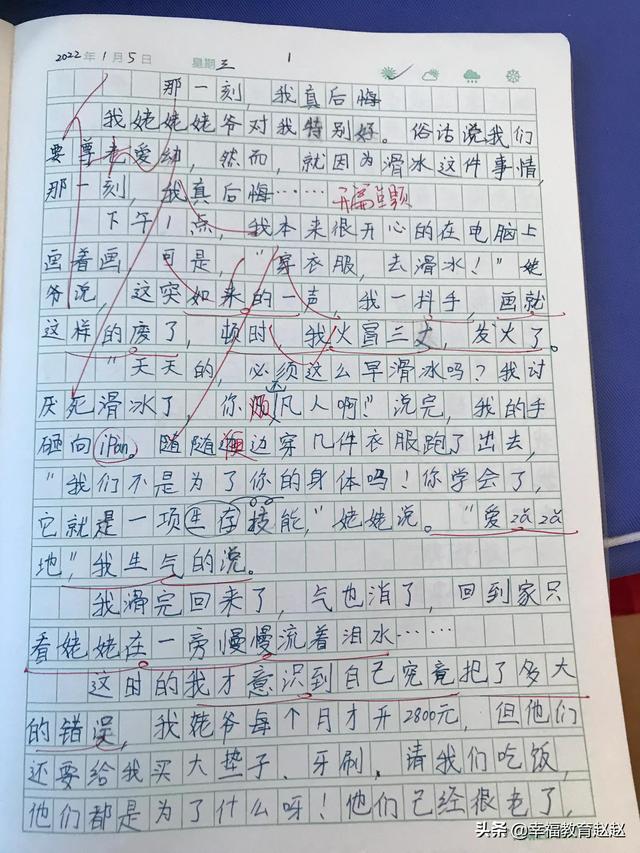 2022年1月5日 星期三 1
那一刻，我真后悔
我姥姥姥爷对我特别好。俗话说我们
要尊老爱幼，然而，就因为滑冰这件事情，
那一刻，我真后悔……
下午1点，我本来很开心的在电脑上
画着画，可是，“穿衣服，去滑冰！”姥
爷说，这突如来的一声，我一抖手，画就
这样的废了，顿时，我火冒三丈，发火了。
“天天的，必须这么早滑冰吗？我讨
厌死滑冰了，你烦凡人啊！”说完，我的手
砸向iPan。随随边穿几件衣服跑了出去，
“我们不是为了你的身体吗！你学会了，
它就是一项生存技能，”姥姥说。“爱
地”，我生气的说。
我滑完回来了，气也消了，回到家只
看姥姥在一旁慢慢流着泪水……
这时的我才意识到自己究竟把了多大
的错误，我姥爷每个月才开2800元，但他们
还要给我买大垫子、牙刷，请我们吃饭，
他们都是为了什么呀！他们已经很老了，
头条@幸福教育赵赵